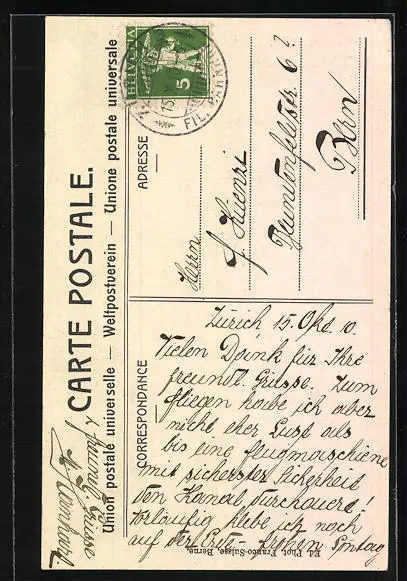 CARTE POSTALE.
Union postale universelle — Weltpostverein — Unione postale universale
HELVETIA
5
15.
FIL. BAHNH
CORRESPONDANCE
ADRESSE
Herrn
J. Kuenzi
6?
Bern
Zürich 15. Okt. 10.
Vielen Dank für Ihre
freundl. Grüsse. Zum
fliegen habe ich aber
nicht eher Lust als
bis eine flugmaschiene
mit sicherster Sicherheit
den Kanal durchquert!
Vorläufig klebe ich noch
auf der Erde. frohen Sonntag
& freundl. Grüsse
Ed. Phot. Franco-Suisse, Berne.